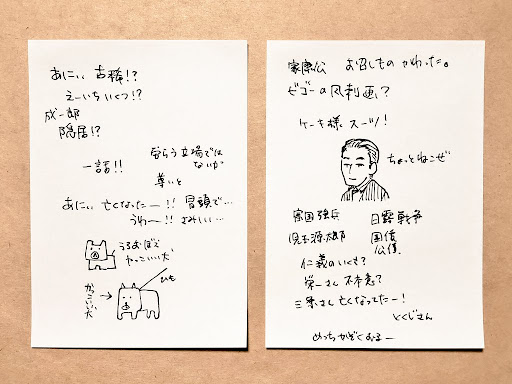 あにぃ 古稀!?
えーいち いくつ!?
成一郎
隠居!?
一話!! 争う立場では
ないが
尊いと
あにぃ 亡くなったー!! 冒頭で…
うわー!! さみしい…
うろおぼえ
かっこいい犬
ひも
かっこいい犬 →
家康公 お召しもの かわった。
ビゴーの風刺画?
ケーキ様 スーツ!
ちょっとねこぜ
富国強兵 日露戦争
児玉源太郎 国債
公債
仁義のいくさ?
栄一さん 不本意?
三条さん 亡くなってたー!
とくじさん
めっちゃかぞくおるー